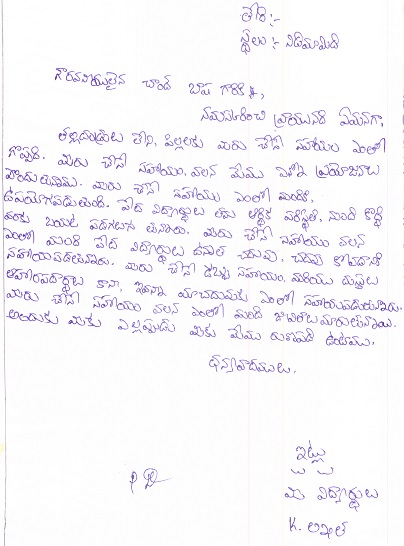 తేది:-
స్థలం:- నిడిమామిడి
గౌరవనీయులైన చాంద్ బాషా గారికి,
నమస్కరించి వ్రాయునది ఏమనగా,
తల్లిదండ్రులు లేని, పిల్లలకు మీరు చేసే సహాయం ఎంతో
గొప్పది. మీరు చేసే సహాయం వలన మేము ఎన్నో ప్రయోజనాలు
పొందుతున్నాము. మీరు చేసే సహాయం ఎంతో మందికి,
ఉపయోగపడుతుంది. పేద విద్యార్థులు తమ ఆర్థిక పరిస్థితి, నుండి కొద్ది
వరకు బయట పడగలుగుతున్నారు. మీరు చేసే సహాయం వలన
ఎంతో మంది పేద విద్యార్థులు ఉన్నత చదువు, చదువు కోవడానికి
సహాయపడుతున్నది. మీరు చేసే డబ్బు సహాయం మరియు దుస్తులు
ఆహారపదార్థాలు కానీ, ఇవన్నీ మా చదువుకు ఎంతో సహాయపడుతున్నది.
మీరు చేసే సహాయం వలన ఎంతో మంది జీవితాలు మారుతున్నాయి.
అందుకు మీకు ఎల్లప్పుడు మీకు మేము రుణపడి ఉంటాము.
ధన్యవాదములు.
ఇట్లు
మీ విద్యార్థులు
K. అఖిల్